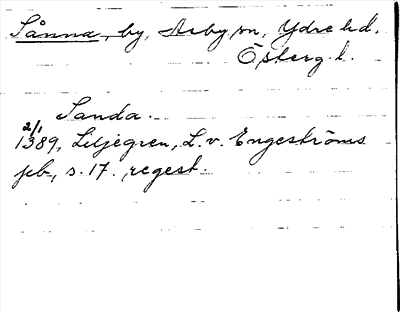 Sånna, by, Asby sn, Ydre hd.
Österg. l.
Sanda.
2/1
1389, Liljegren, L. v. Engeströms
pb, s. 17. regest.